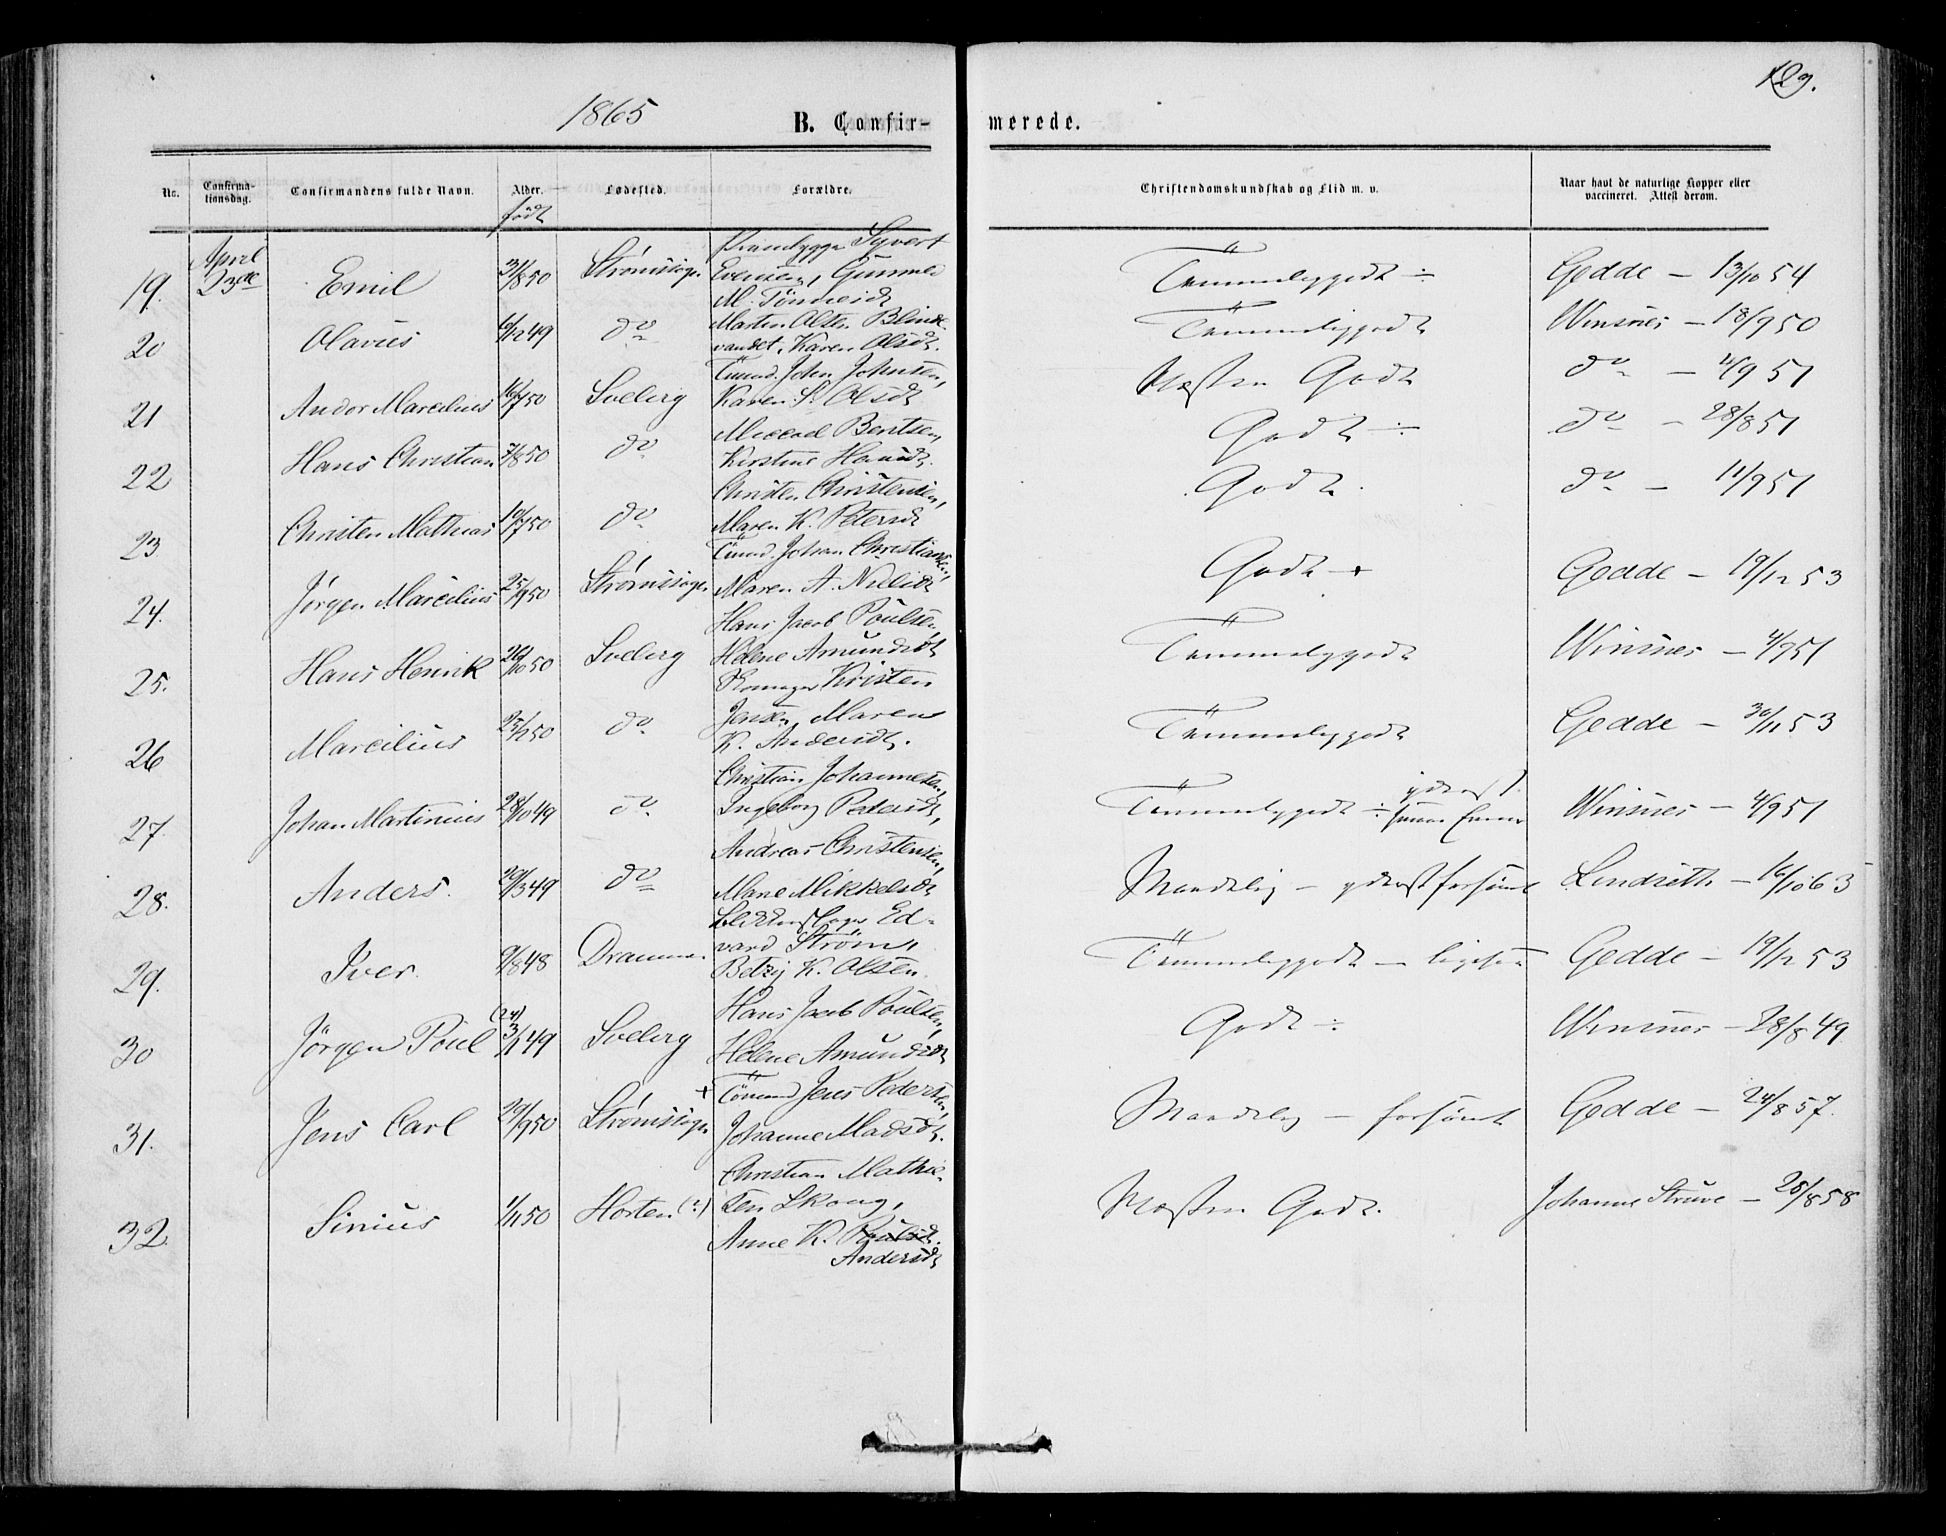 129.
1865
B. Confirmerede.
No. Confirmationsdag. Confirmandens fulde Navn. Alder. Fødested. Forældre. Christendomskundskab og Flid m. v. Naar havt de naturlige Kopper eller vaccineret. Attest derom.
født
April 23de
19. Emil 31/8 50 Strømssogn Syvert Evensen, Gunmed M. Tönnesdt Temmeliggodt ÷ Gedde – 13/10 54
20 Olavus 6/12 49 do Marten Olsen Blindevandet, Karen Olsdt. Temmeliggodt Winsnes – 18/9 50
21 Andor Marcelius 16/7 50 Svelvig Tömmd. John Johnsen, Karen S. Olsdt Næsten Godt do – 4/9 51
22 Hans Christian 7/8 50 do Mikkel Bentsen, Kirstine Hansdt. Godt ÷ do – 28/8 51
23 Christen Mathias 10/7 50 do Christen Christensen, Maren K. Petersdt Godt. do – 11/9 51
24. Jørgen Marcilius 25/9 50 Strømssogn Tömmd. Johan Christiansen, Maren A. Nilsdt Godt + Gedde – 19/12 53
25. Hans Henrik 26/10 50 Svelvig Hans Jacob Poulsen Helene Amundsdt Temmeliggodt Winsnes – 4/9 51
26 Marcilius 25/1 50 do Kristen Jensen, Maren K. Andersdt. Temmeliggodt Gedde – 30/11 53
27. Johan Martinius 28/10 49 do Christian Johannesen, Ingeborg Pedersdt, Temmeliggodt ÷ yderst Winsnes – 4/9 51
28. Anders. 29/3 49 do Andreas Christensen, Marie Mikkelsdt Maadelig – yderst forsömt Lindseth – 16/10 63
29. Iver. 9/8 48 Drammen Edvard Ström, Betzy K. Olsen. Temmeliggodt – ligesaa Gedde – 19/12 53
30 Jørgen Poul (24) 3/1 49 Svelvig Hans Jacob Poulsen, Helene Amundsdt Godt ÷ Winsnes – 28/8 49
31. Jens Carl 29/9 50 Strømssogn + Tömmd Jens Pedersen, Johanne Madsdt. Maadelig – forsömt Gedde – 24/8 57.
32. Sinius 1/11 50 Horten (?) Christian Mathiesen Skoug, Anne K. Poulsdt. Andersdt Næsten Godt. Johanne Struve – 25/8 58